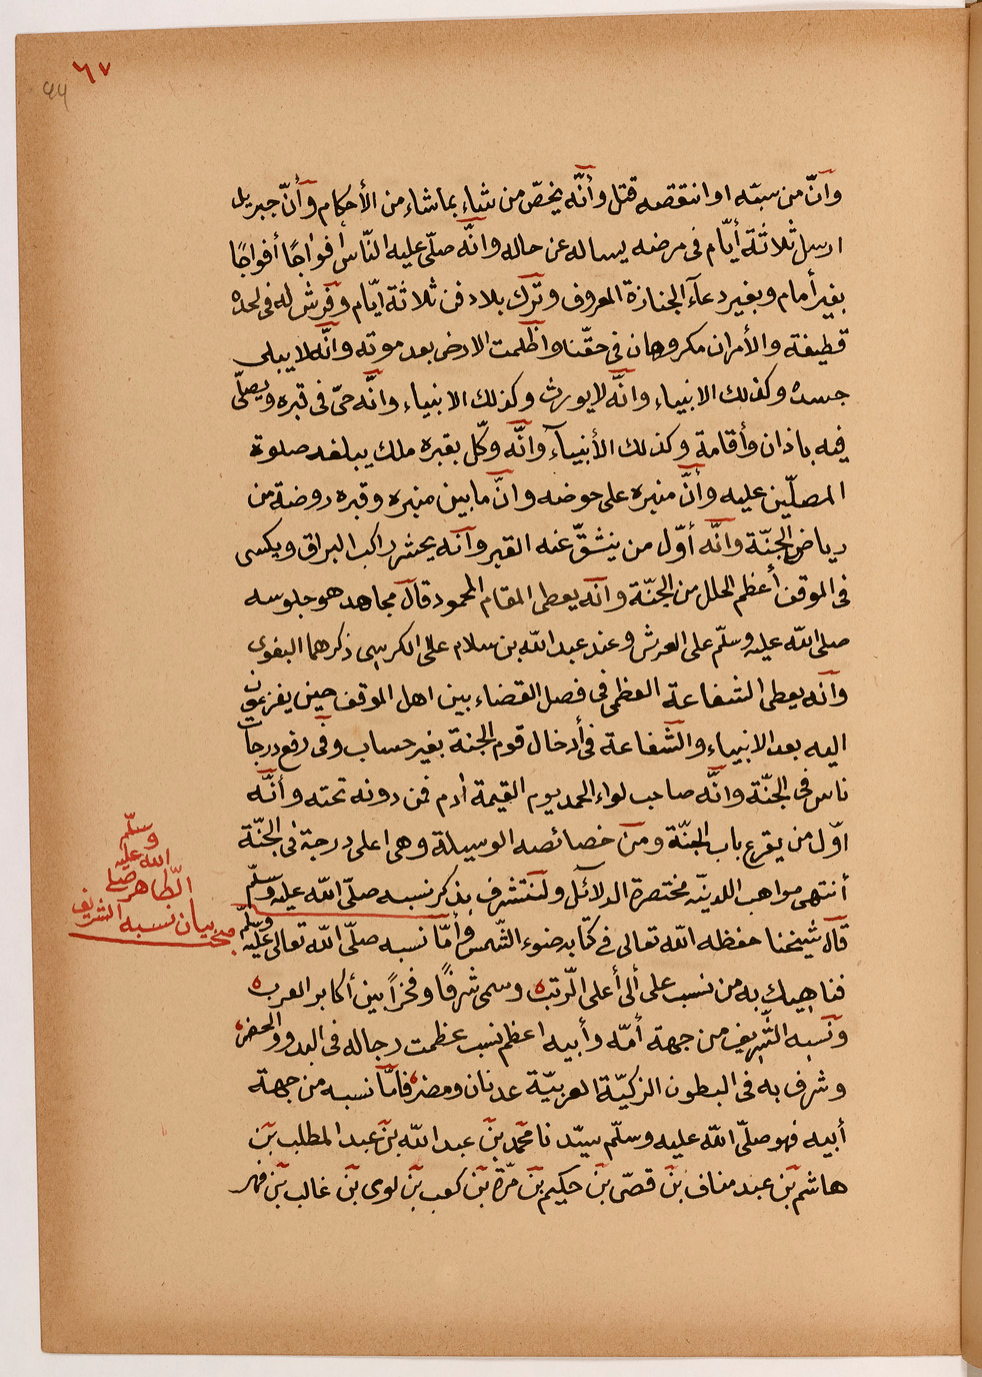 ٦٧
٩٩
وأنّ من سبّه او انتقصه قتل وأنّه يخصّ من شاء بما شاء من الأحكام وأنّ جبريل
ارسل ثلاثة أيّام فى مرضه يساله عن حاله وانّه صلّى عليه النّاس أفواجًا أفواجًا
بغير أمام وبغير دعآء الجنازة المعروف وترك بلا دفن ثلاثة ايّام وفرش له فى لحده
قطيفة والأمران مكروهان فى حقّنا واظلمت الارض بعد موته وانّه لا يبلى
جسده وكذلك الانبياء وانّه لا يورث وكذلك الانبياء وانّه حىّ فى قبره ويصلّى
فيه باذان وأقامة وكذلك الأنبيآء وانّه وكّل بقبره ملك يبلغه صلوة
المصلّين عليه وأنّ منبره على حوضه وانّ ما بين منبره وقبره روضة من
رياض الجنّة وانّه أوّل من ينشقّ عنه القبر وانه يحشر راكب البراق ويكسى
فى الموقف أعظم الحلل من الجنّة وانه يعطى المقام المحمود قال مجاهد هو جلوسه
صلى الله عليه وسلّم على العرش وعند عبد الله بن سلام على الكرسى ذكرهما البغوى
وانه يعطى الشفاعة العظمى فى فصل القضاء بين اهل الموقف حين يفزعون
اليه بعد الانبياء والشّفاعة فى أدخال قوم الجنة بغير حساب وفى رفع درجات
ناس فى الجنّة وانّه صاحب لواء الحمد يوم القيمة أدم فمن دونه تحته وأنّه
اوّل من يقرع باب الجنّة ومن خصائصه الوسيلة وهى اعلى درجة فى الجنّة
أنتهى مواهب اللدنيّه مختصرة الدلآئل ولنتشرف بذكر نسبه صلّى الله عليه وسلّم
قال شيخنا حفظه الله تعالى فى كتابه ضوء الشّمس وأمّا نسبه صلّى الله تعالى عليه وسلّم
فناهيك به من نسب على ألى أعلى الرّتب وسمى شرفًا وفخرًا بين أكابر العرب
ونسبه الشّريف من جهة أمّه وأبيه اعظم نسب عظمت رجاله فى البدو والحضر
وشرف به فى البطون الزكيّة العربيّة عدنان ومضر فامّا نسبه من جهة
أبيه فهو صلّى الله عليه وسلّم سيّدنا محمّد بن عبد الله بن عبد المطلب بن
هاشم بن عبد مناف بن قصّى بن حكيم بن مرّة بن كعب بن لوى بن غالب بن فهر
بيان نسبه الشريف
الطّاهر صلى
الله عليه
وسلّم